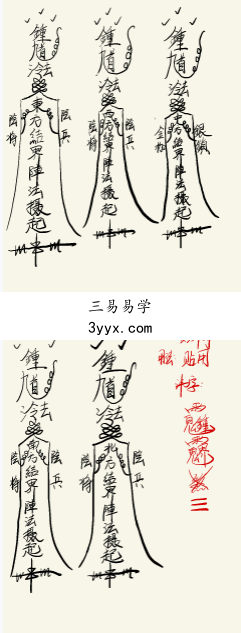 鍾馗
冷法
東方結界陣法攝起
陰将
陰兵
鍾馗
冷法
西方結界陣法攝起
陰将
陰兵
鍾馗
冷法
中方結界陣法攝起
金
銀
三易易学
3yyx.com
鍾馗
冷法
南方結界陣法攝起
陰将
陰兵
鍾馗
冷法
北方結界陣法攝起
陰将
陰兵
用
貼
三